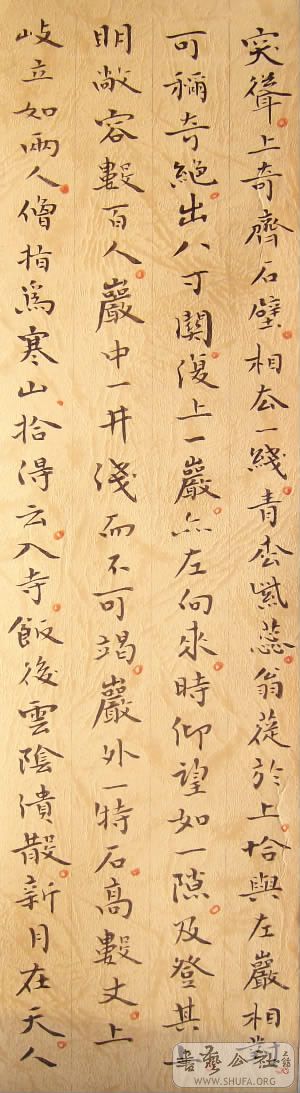 突聳上奇齊石壁相去一綫青松紫蕊翁蓯於上恰與左巖相對
可稱奇絕出八寸關復上一巖亦左向來時仰望如一隙及登其上
明敞容數百人巖中一井淺而不可竭巖外一特石高數丈上
岐立如兩人僧指為寒山拾得云入寺飯後雲陰潰散新月在天人
書藝公社
WWW.SHUFA.ORG